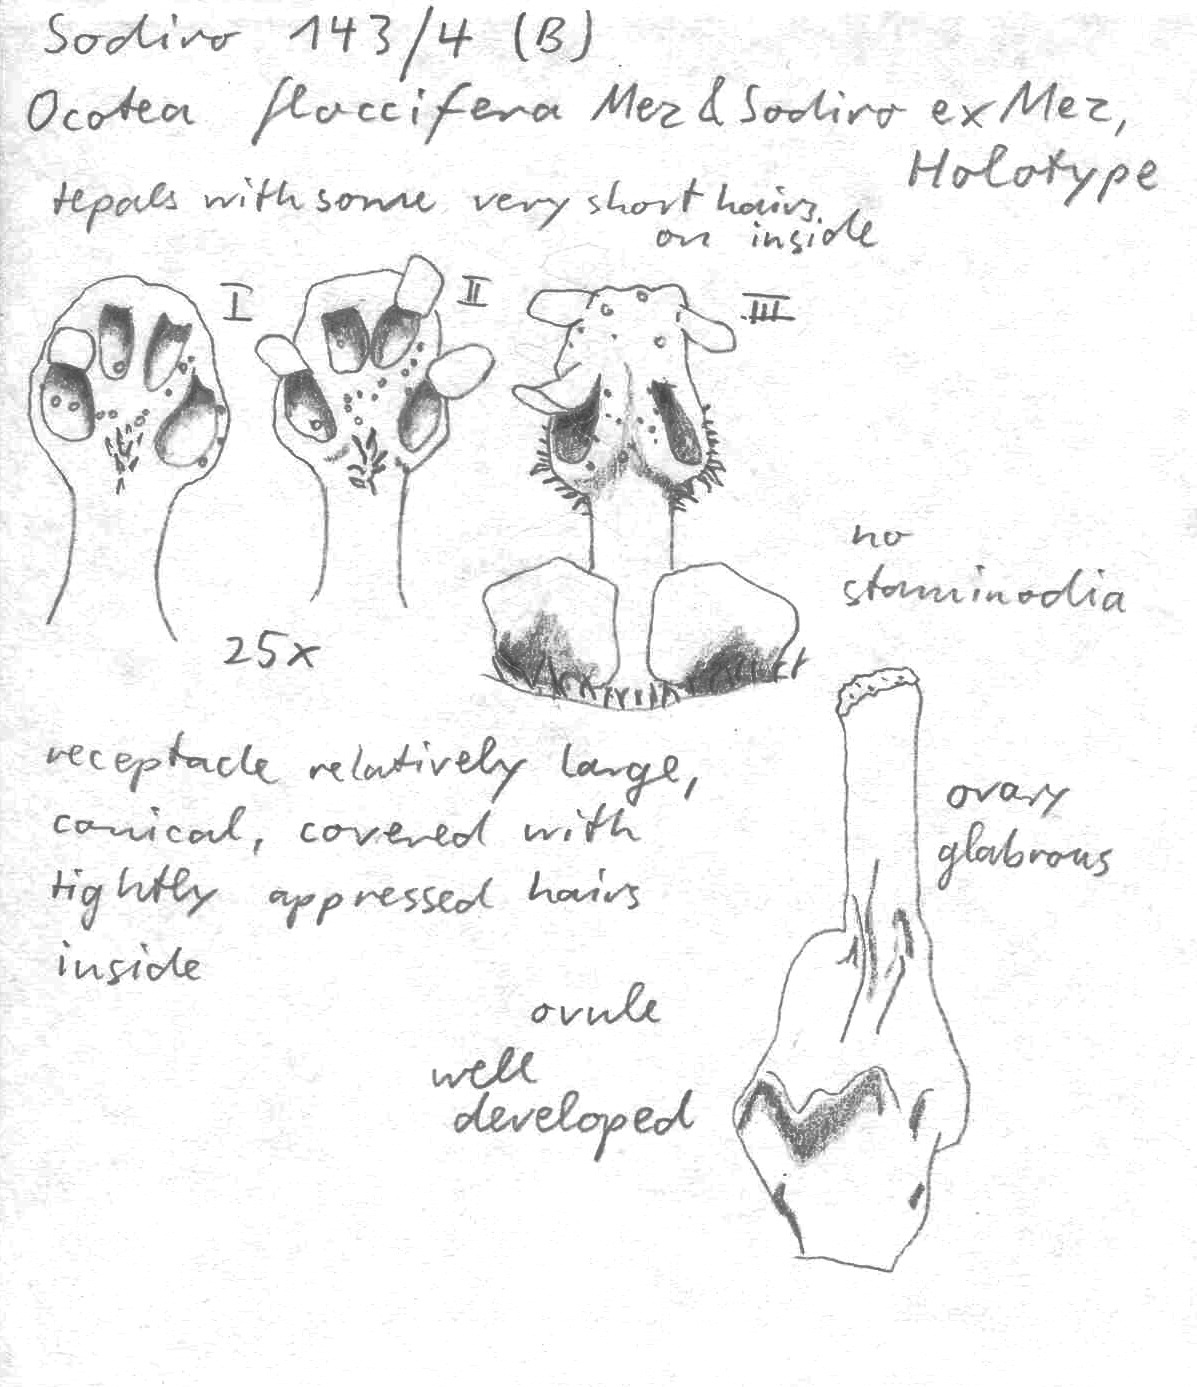 Sodiro 143/4 (B)
Ocotea floccifera Mez & Sodiro ex Mez,
Holotype
tepals with some very short hairs
on inside
I
II
III
no
staminodia
25x
receptacle relatively large,
conical, covered with
tightly appressed hairs
inside
ovary
glabrous
ovule
well
developed